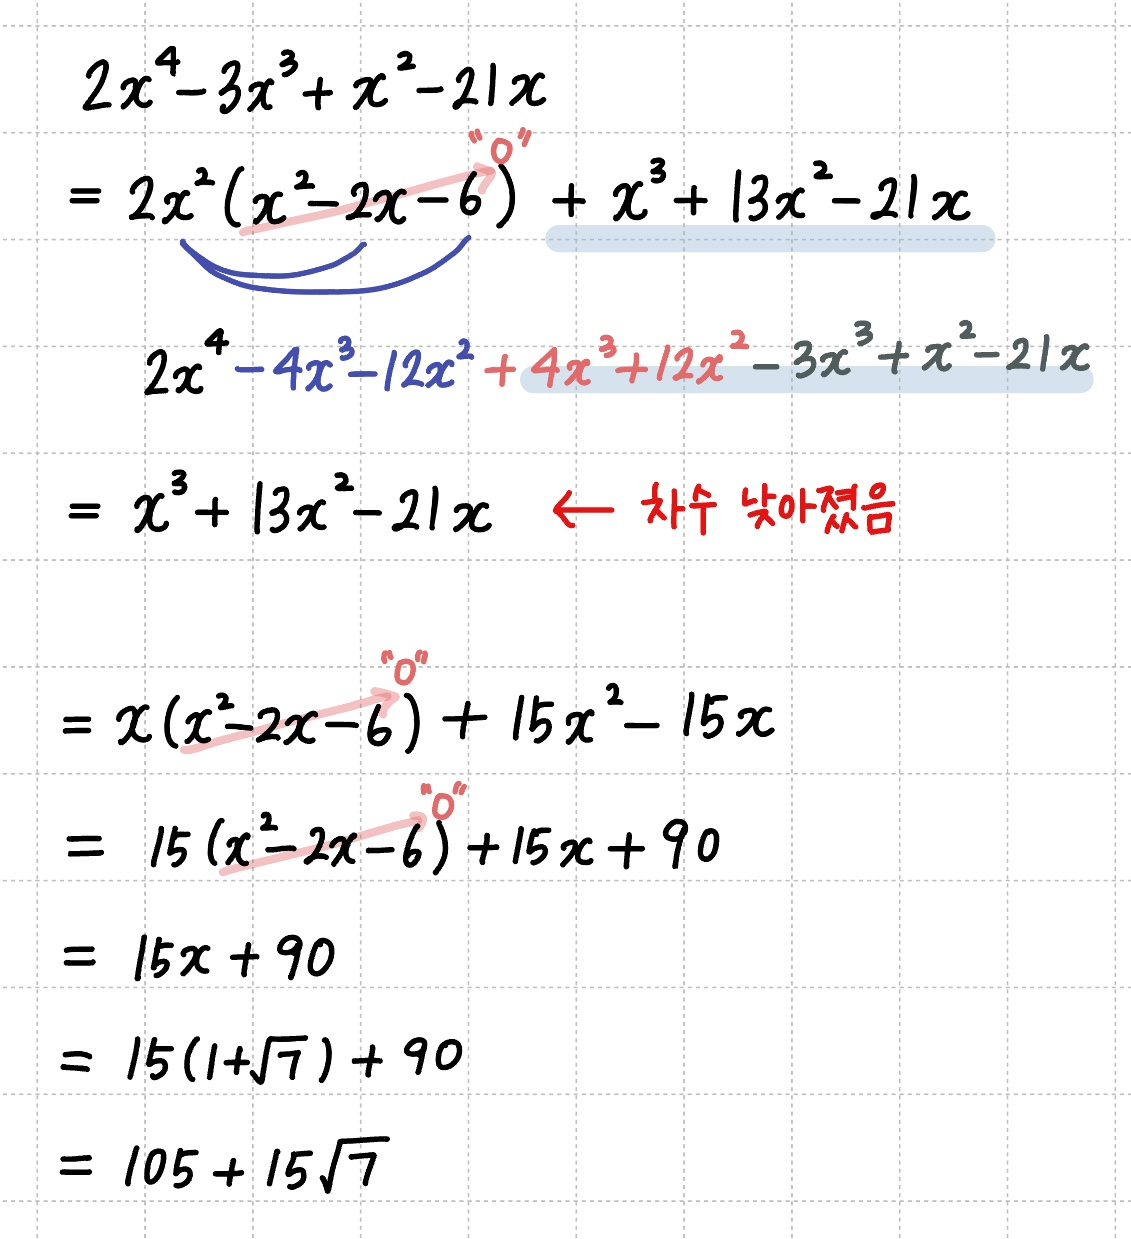 2x⁴-3x³+x²-21x
"0"
= 2x²(x²-2x-6) + x³+13x²-21x
2x⁴-4x³-12x²+4x³+12x²-3x³+x²-21x
= x³+13x²-21x ← 차수 낮아졌음
"0"
= x(x²-2x-6) + 15x²-15x
"0"
= 15(x²-2x-6)+15x+90
= 15x+90
= 15(1+√7)+90
= 105+15√7